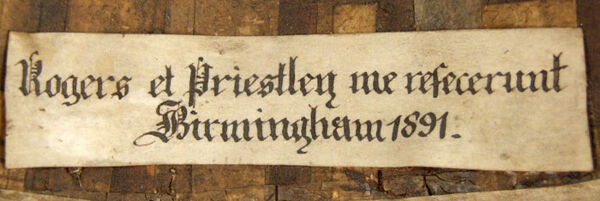 Rogers et Priestley me refecerunt
Birmingham 1891.